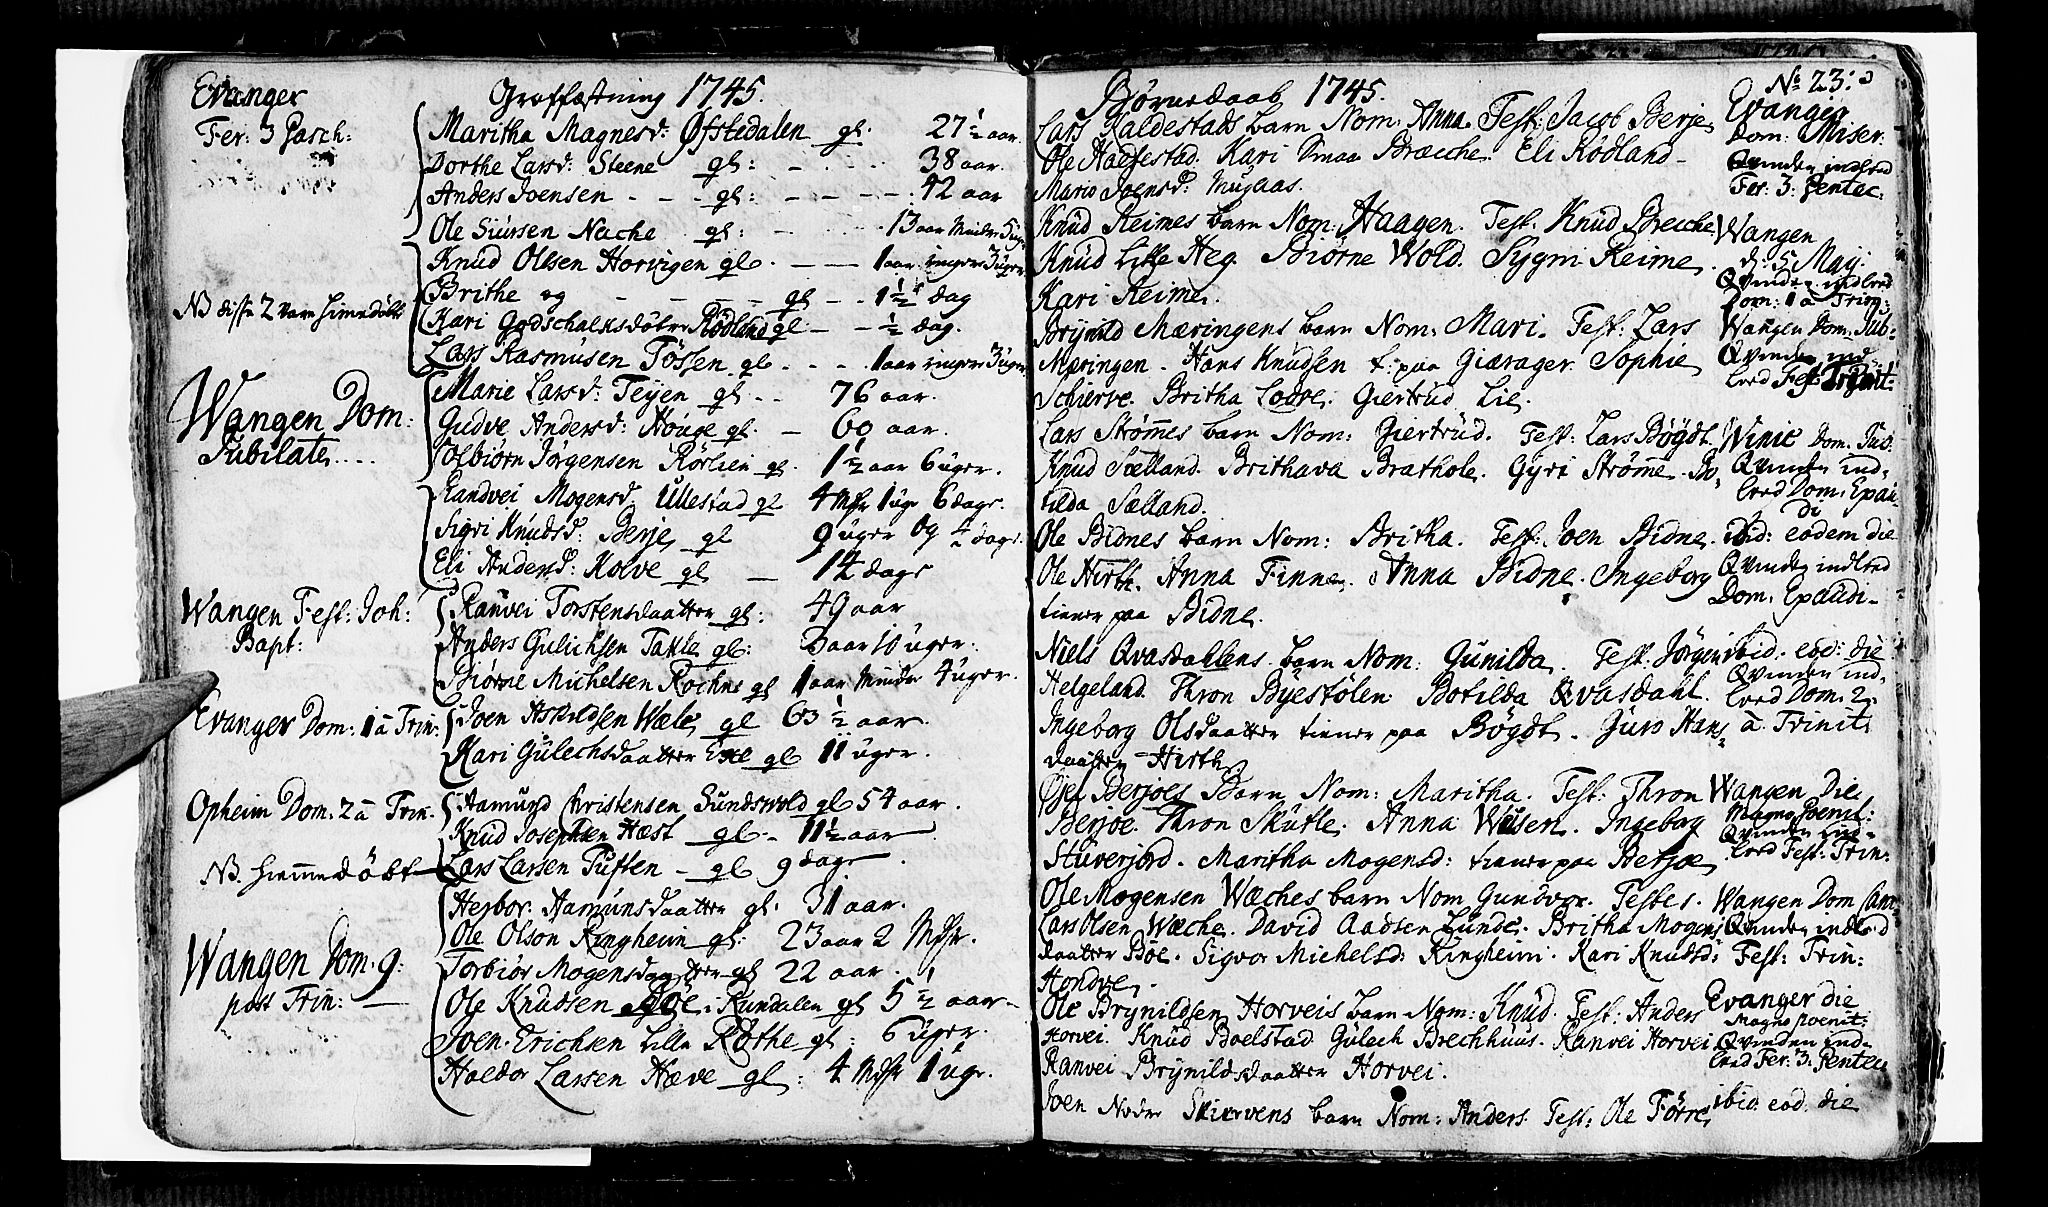 Evanger
Fer: 3 Pasch:
Graffæstning 1745.
Maritha Magnesd: Øfstedalen gl. 27 1/2 aar
Dorthe Larsd: Steene gl: - . - . 38 aar.
Anders Joensen - - - gl: - - - - . 42 aar
Ole Siursen Nache gl: - . . . 13 aar Minder 5 ug:
Knud Olesen Horvigen gl. - - 1 aar ringer 3 uger
Brithe og - - - - gl - - 1 1/2 dag
NB disse 2 vare hiemedøbt
Kari Godschalksdøbtre Rødland gl - - 1/2 dag.
Lars Rasmusen Tøssen gl - . . . 1 aar ringer 3 uger
Wangen Dom:
Jubilate ....
Marie Larsd: Teyen gl - - 76 aar.
Gudve Andersd: Houge gl. - 60 aar.
Colbiørn Jørgensen Rørlien gl. 1 1/2 aar 6 uger.
Randvei Mogensd. Ullestad gl 4 Mdr 1 ugr 6 dage.
Sigri Knudsd: Berje gl 9 uger og 4 dage.
Eli Andersd: Kolve gl - 14 dage
Wangen Fest: Joh:
Bapt:
Ranvei Torstensdaatter gl: 49 aar
Anders Gulichsen Takle gl: 3 aar 10 uger.
Biørne Michelsen Rochne gl 1 aar Minder 4 uger.
Evanger Dom: 1 a Trin:
Joen Askildsen Wæle gl 63 1/2 aar.
Kari Gulechsdaatter Exe gl 11 uger.
Opheim Dom: 2 a Trin.
Aamund Christensen Sundswold gl 54 aar.
Knud Josephsen Hæst gl - 11 1/2 aar
NB hiemmedöbt
Lars Larsen Tuften - gl 9 dage.
Herbor: Aamunsdaatter gl. 31 aar.
Ole Olson Ringheim gl: 23 aar 2 Mdr.
Wangen Dom. 9:
post Trin: -
Torbiør Mogensdaatter gl 22 aar.
Ole Knudsen Böe i Rundalen gl 5 1/2 aar-
Joen Erichsen Lille Röthe gl: 6 uger.
Haldor Larsen Hæve gl: 4 Mdr 1 ugr.
Børnedaab 1745.
No 23:
Lars Kaldestads barn Nom: Anna. Test: Jacob Berje
Evanger
Dom: Miser:
Ole Haafestad. Kari Smaa Bræcche. Eli Rødland -
Qvinden indled
Marie Joensd: Mugaas.
Fer: 3: Pentec:
Knud Reimes barn Nom: Haagen. Test. Knud Brecche
Wangen
Knud Litle Heg. Biørne Wold. Sygni Reime.
d: 5 May.
Qvinden indled
Kari Reime.
Dom: 1 a Trin:
Brynild Mæringens barn Nom: Mari. Test: Lars
Wangen Dom: Jub:
Mæringen. Hans Knudsen t: paa Giærager Sophie
Qvinden ind-
led Fest Trinit:
Schierve. Britha Lodve. Giertrud Lie.
Lars Strømes barn Nom: Giertrud. Test: Lars Bøgdt.
Winie Dom. Jub:
Knud Sælland. Brithava Brathole. Gyri Strøme. Bo-
Qvinden ind-
tilda Sælland.
led Dom: Exau-
di
Ole Bidnes barn Nom: Britha. Test: Joen Bidne.
ibid: eodem die
Ole Hirth. Anna Finne. Anna Bidne. Ingeborg
Qvinden indled
tiener paa Bidne.
Dom. Exaudi-
Niels Qvasdallens barn Nom: Gunilda. Test: Jørgen
ibid: eod: die
Helgeland. Thron Byestølen. Botilda Qvasdahl.
Qvinden ind-
led Dom. 2
Ingeborg Olsdaatter tiener paa Bögdt. Guro Hans
a. Trinit.
daatter Hirth.
Barn Nom: Maritha. Test: Thron
Wangen Die
Magno Poenit:
Berjoe. Thron Skutle. Anna Winsen. Ingeborg
Qvinden ind-
Stuverjord. Maritha Mogensd: tiener paa Berjoe
led Fest: Trin:
Ole Mogensen Wæches barn Nom Gundvor. Testes.
Wangen Dom Cant
Lars Olsen Wæche. David Aadsen Lunde. Britha Mogens
Qvinden indled
daatter Bøe. Sigvor Michelsd: Ringheim. Kari Knudsd:
Fest: Trin:
Hondve.
Ole Brynildsen Horveis barn Nom: Knud. Test: Anders
Evanger die
Magno poenit:
Horvei. Knud Boelstad. Gulech Brechhuus. Ranvei Horvei.
Qvinden ind-
Ranvei Brynildsdaatter Horvei.
led Fer: 3: Pentec
Joen Nedre Skiervens barn Nom: Anders. Test: Ole Förre
ibid. eod. die